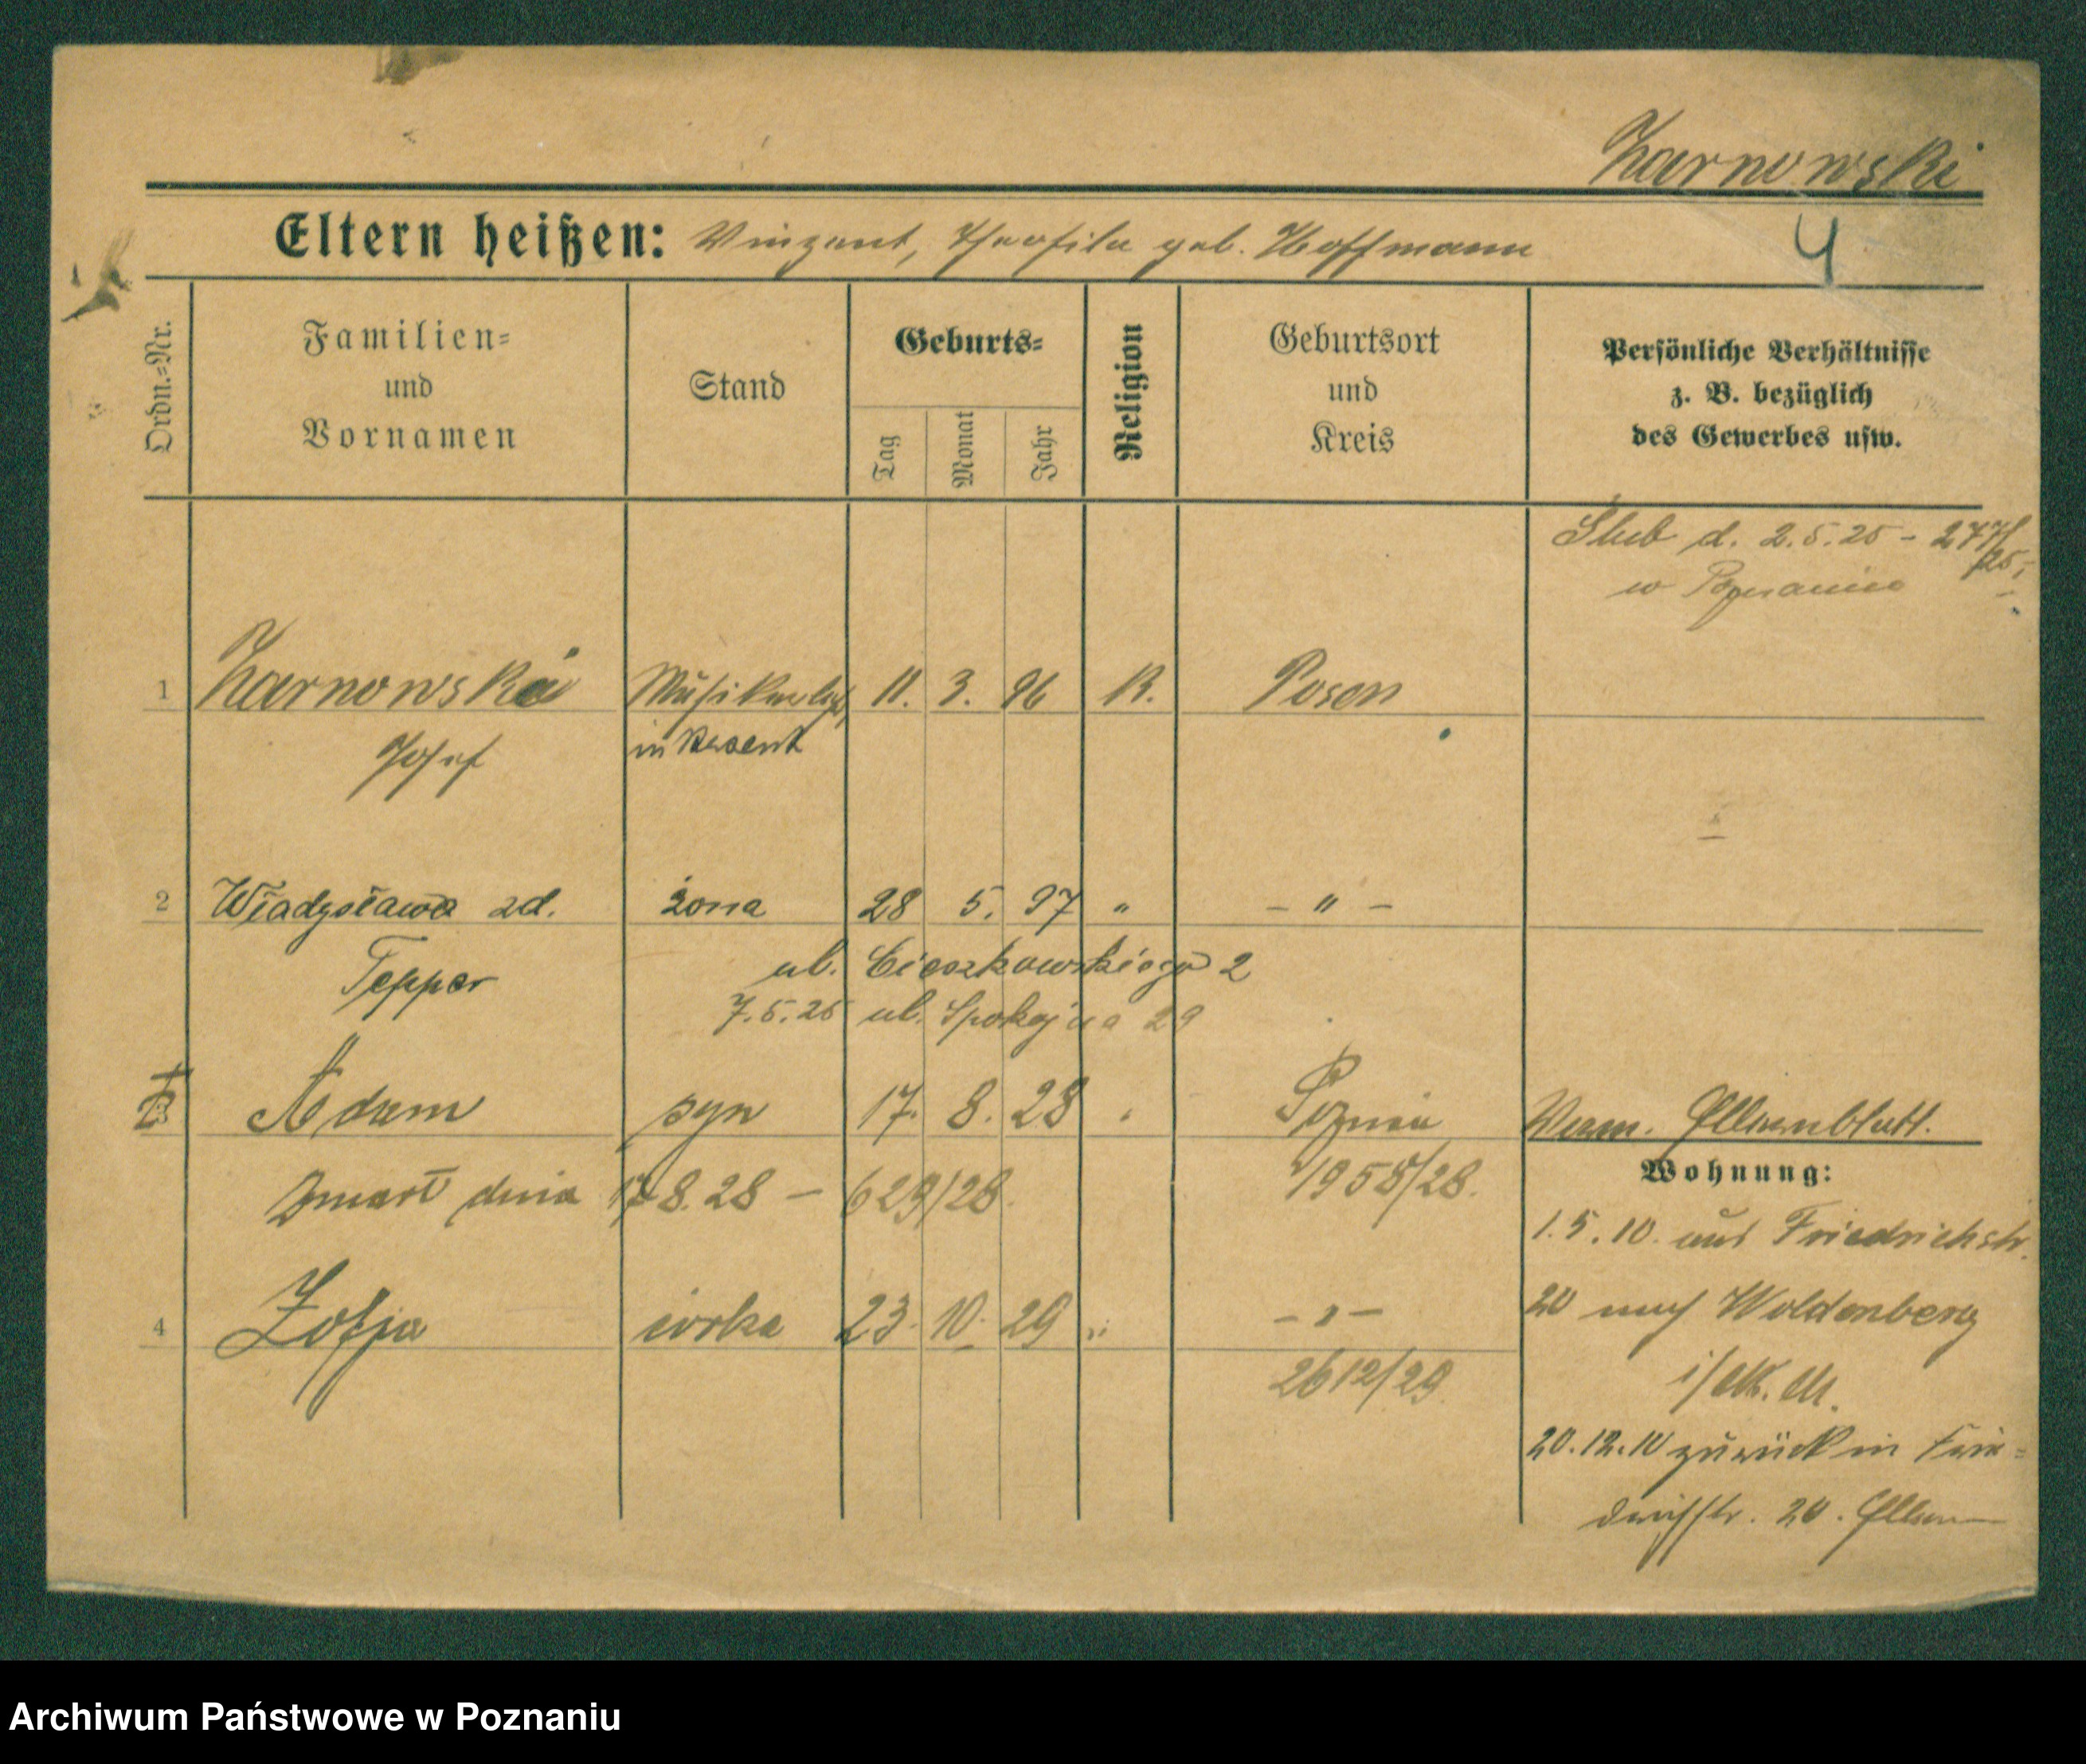 Żarnowski
Eltern heißen: Vinzent, Theofila geb. Hoffmann
4
Ordn.-Nr.
Familien-
und
Vornamen
Stand
Geburts-
Tag
Monat
Jahr
Religion
Geburtsort
und
Kreis
Persönliche Verhältnisse
z. B. bezüglich
des Gewerbes usw.
Ślub d. 2.5.25 - 277/25
w Poznaniu
1 Żarnowski 11. 3. 96 K. Posen
Josef inkasent
2 Władysława zd. żona 28 5. 97 " - " -
Tepper ul. Cieszkowskiego 2
7.5.25 ul. Spokojna 29
3 Adam syn 17. 8. 28 Poznań
Zmarł dnia 8.28 - 629/28. 1958/28.
Verm. Elternblatt.
Wohnung:
1.5.10. aus Friedrichstr.
20 nach Woldenberg
i/
4 Zofja córka 23. 10. 29 " - " -
2612/29
20.12.10 zurück in Frie-
drichstr. 20. Eltern
Archiwum Państwowe w Poznaniu